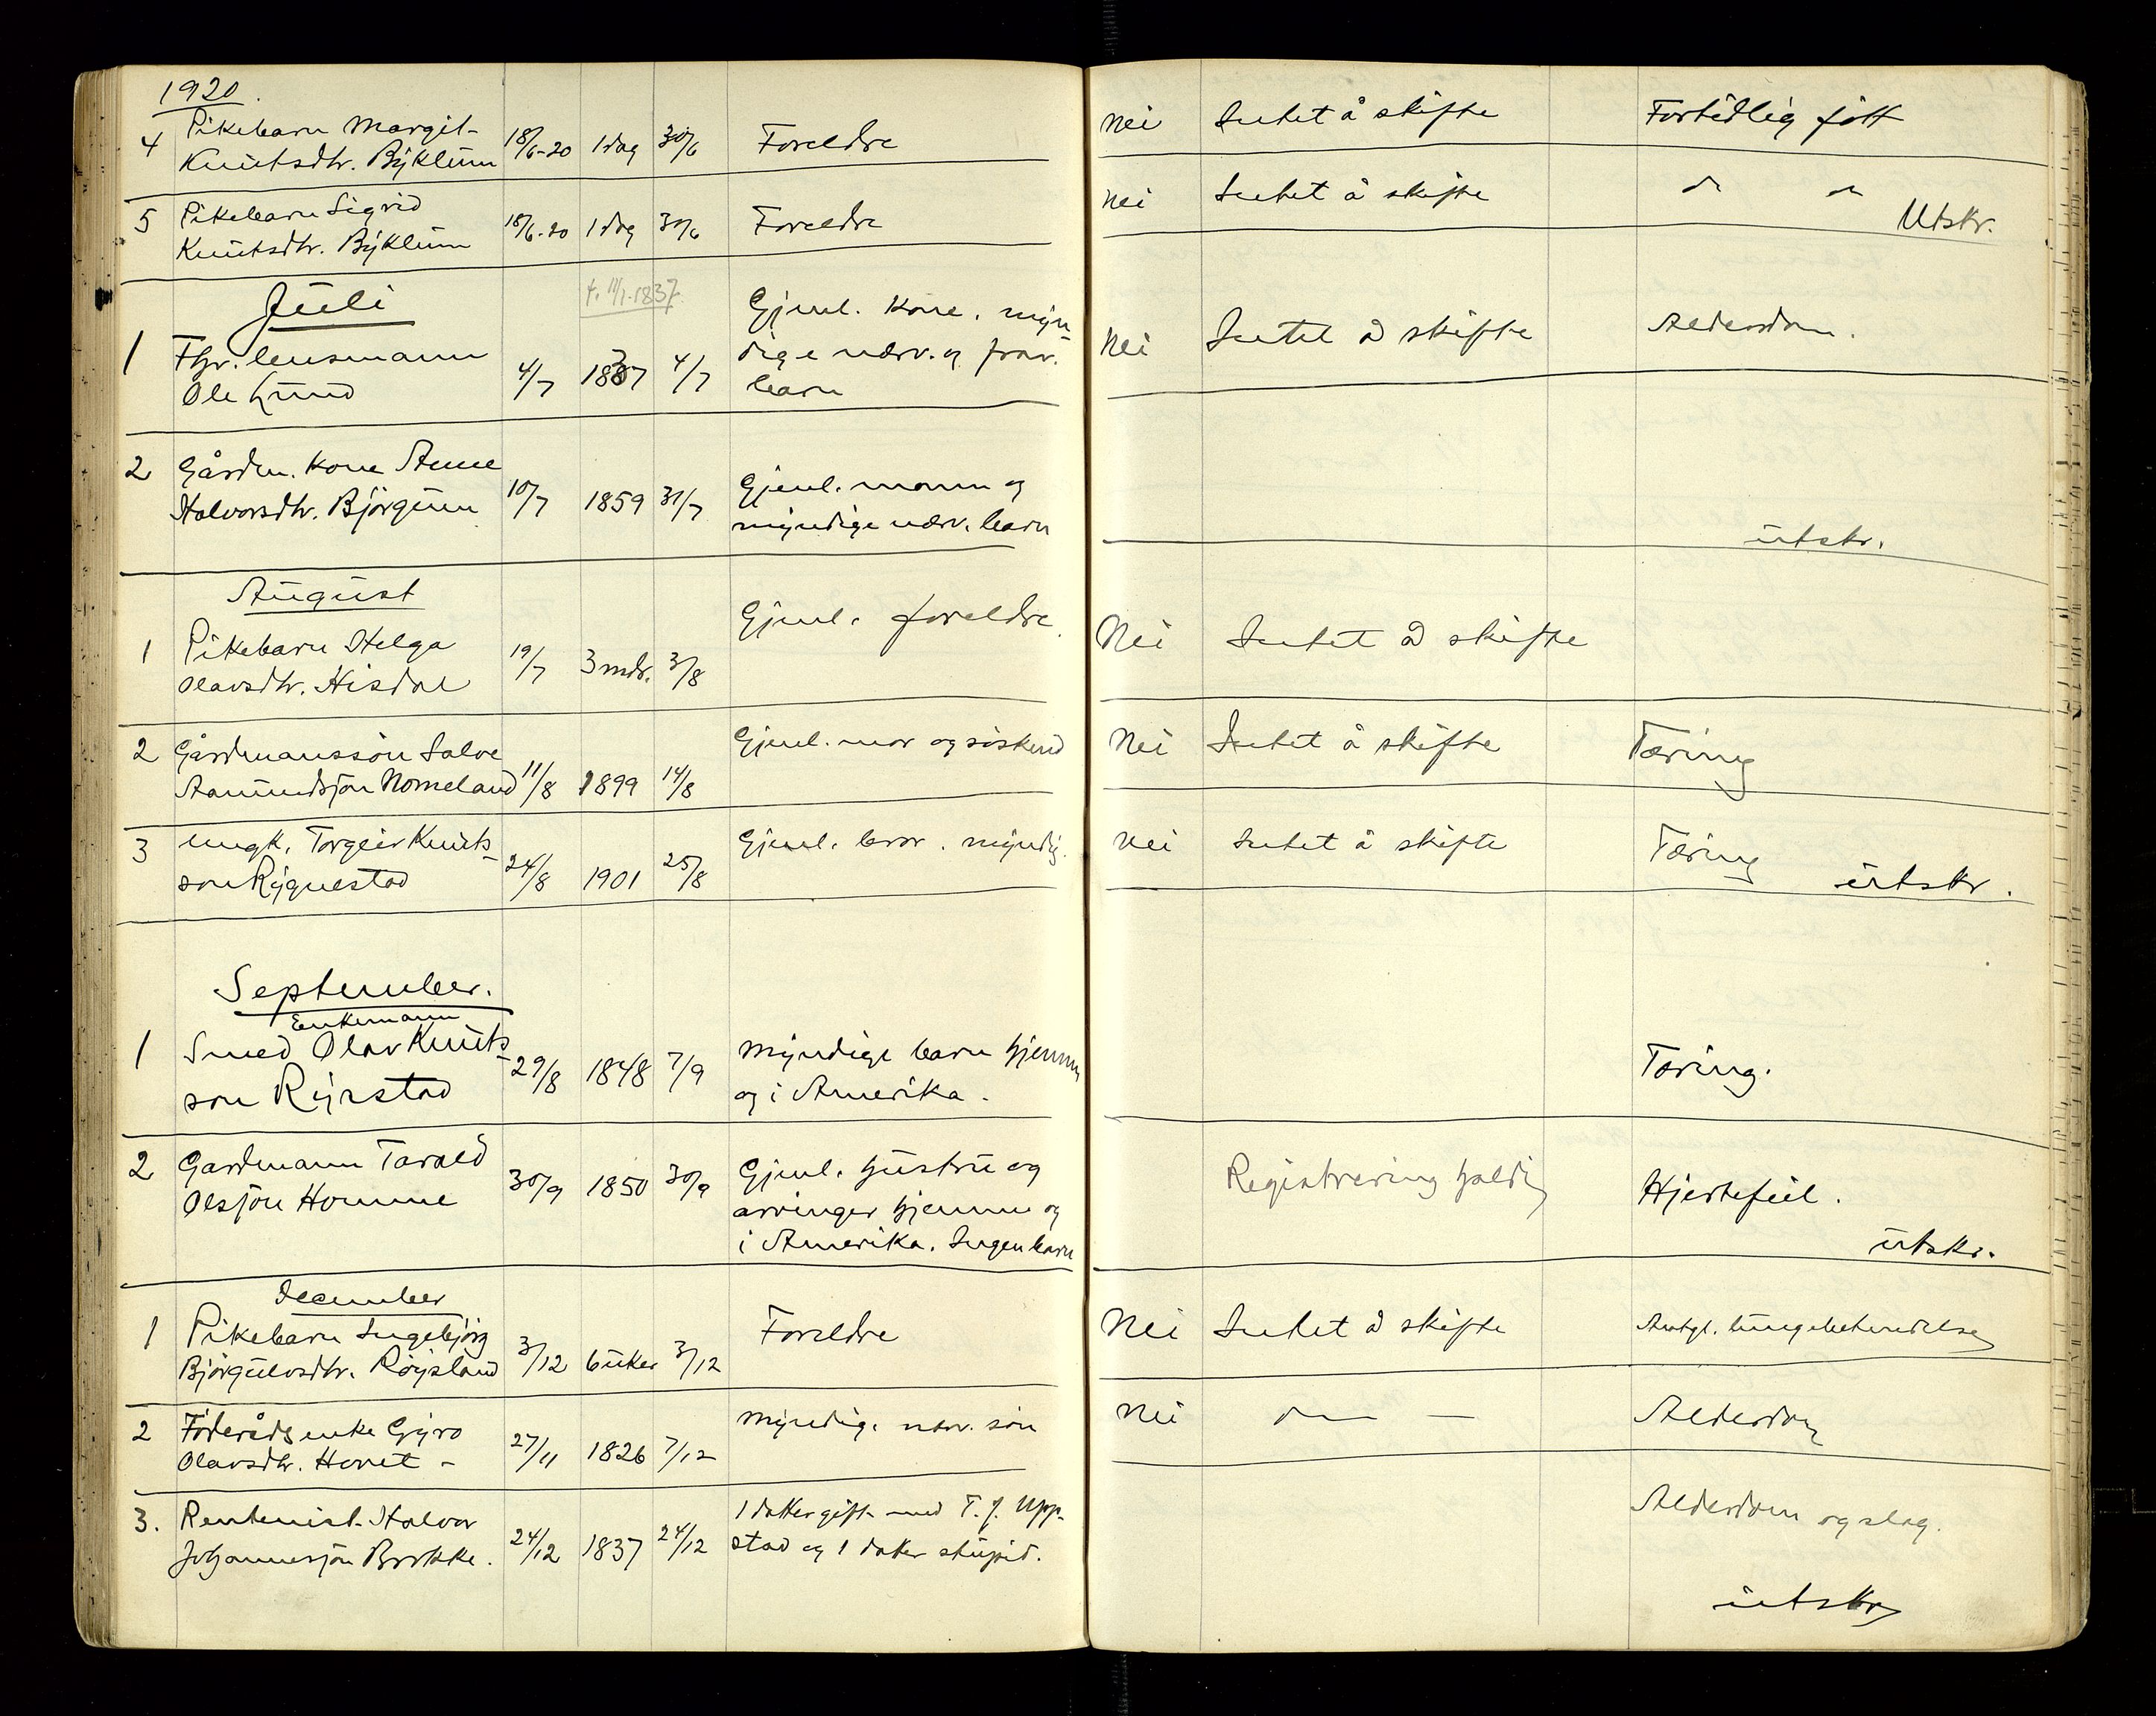 1920.
4 Pikebarn Margit
Knutsdtr. Byklum 18/6-20 1 dag 30/6 Foreldre Nei Intet å skifte Fortidlig fött
5 Pikebarn Sigrid
Knutsdtr. Byklum 18/6-20 1 dag 30/6 Foreldre Nei Intet å skifte " "
Utskr.
Juli
f. 11/1-1837.
1 Fhv. lensmann
Ole Lund 4/7 1837 4/7 Gjenl. kone. myn-
dige nærv. og frav.
barn
Nei Intet å skifte Alderdom.
2 Gårdm. kone Anne
Halvorsdtr. Björgum 10/7 1859 31/7 Gjenl. mann og
myndige nærv. barn
utskr.
August
1 Pikebarn Helga
Olavsdtr. Hisdal 19/7 3 mdr. 3/8 Gjenl. foreldre.
Nei Intet å skifte
2 Gårdmannssön Salve
Aamundsjon Nomeland 11/8 1899 14/8 Gjenl. mor og söskend
Nei Intet å skifte Tæring
3 Ungk. Torgeir Knuts-
son Rygnestad 24/8 1901 25/8 Gjenl. bror. myndig.
Nei Intet å skifte Tæring
utskr.
September.
Enkemann
1 Smed Olav Knuts-
son Rysstad 29/8 1848 7/9 Myndige barn hjemme
og i Amerika.
Tæring.
2 Gardmann Tarald
Olsjön Homme 30/9 1850 30/9 Gjenl. hustru og
arvinger hjemme og
i Amerika. Ingen barn
Registrering holdt Hjertefeil.
utskr.
December
1 Pikebarn Ingebjörg
Björgulvsdtr. Röysland 3/12 6 uker 3/12 Foreldre
Nei Intet å skifte lungebetendelse
2 Föderåds enke Gyro
Olavsdtr. Hovet - 27/11 1826 7/12 Myndig. nærv. sön
Nei — — Alderdom
3. Rentenist. Halvor
Johannesjön Brokke. 24/12 1837 24/12 1 datter gift med T. J. Upp-
stad og 1 datter stupid.
Alderdom og slag.
utskr.